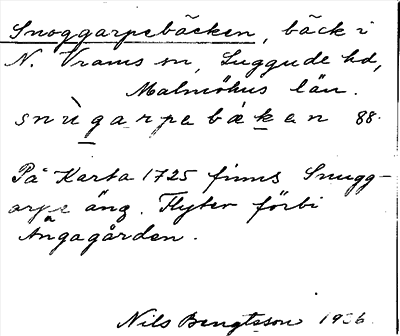 Snoggarpebäcken, bäck i
N. Vrams sn, Luggude hd,
Malmöhus län.
snùgarpabäkan 88.
På Karta 1725 finns Snugg-
arpe äng. Flyter förbi
Ängagården.
Nils Bengtsson 1926.